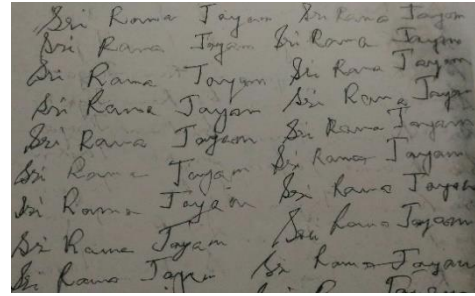 Sri Rama Jayam Sri Rama Jayam
Sri Rama Jayam Sri Rama Jayam
Sri Rama Jayam Sri Rama Jayam
Sri Rama Jayam Sri Rama Jayam
Sri Rama Jayam Sri Rama Jayam
Sri Rama Jayam Sri Rama Jayam
Sri Rama Jayam Sri Rama Jayam
Sri Rama Jayam Sri Rama Jayam
Sri Rama Jayam Sri Rama Jayam
Rama Jayam